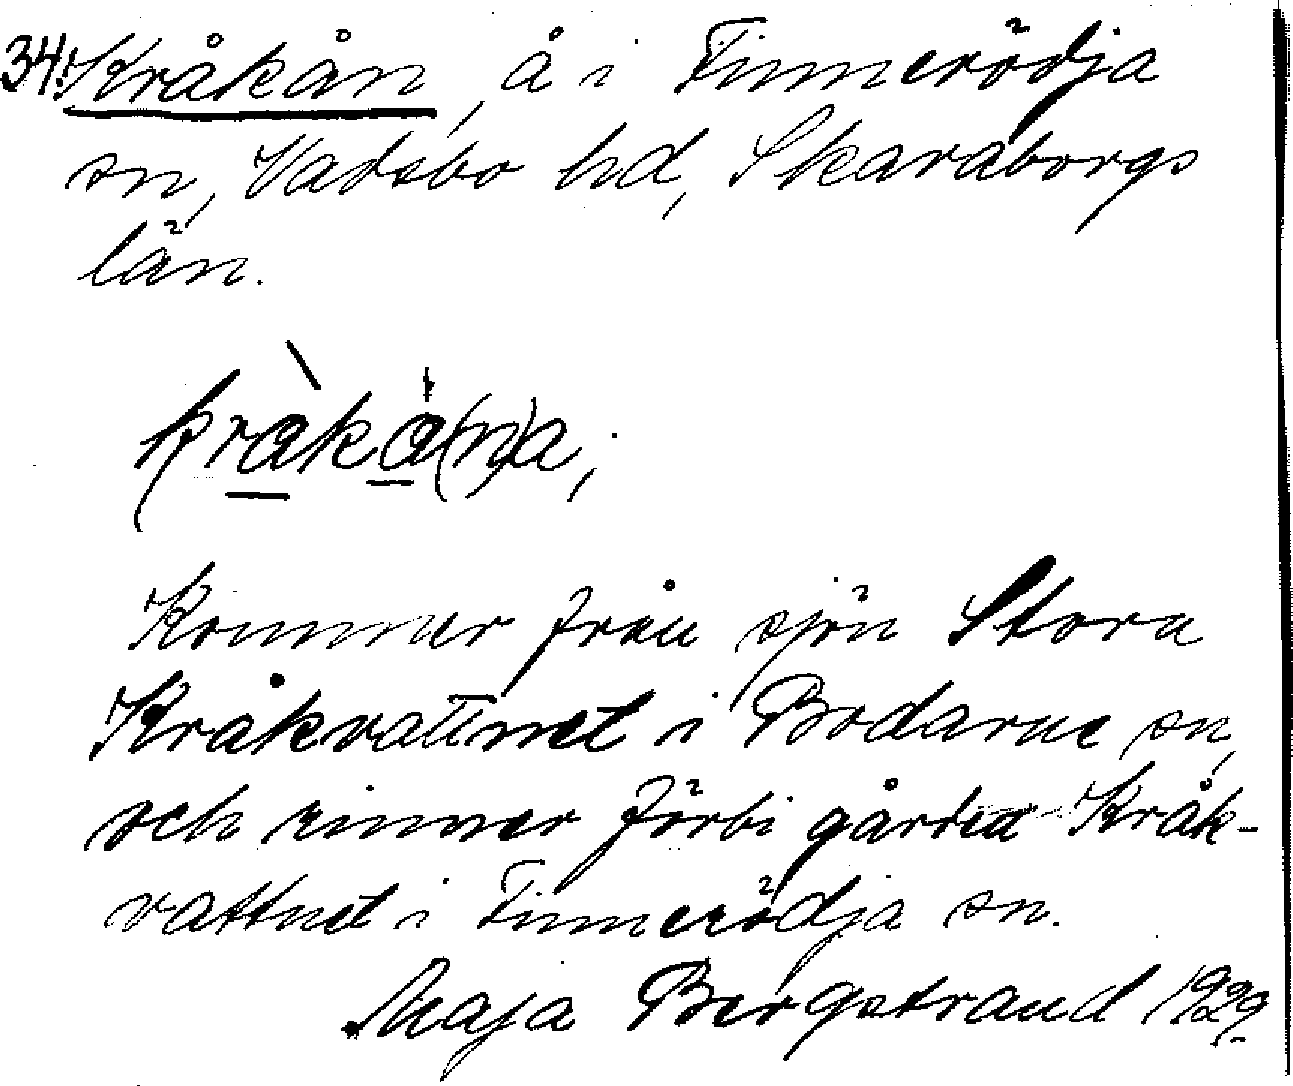 34. Kråkån, å i Finnerödja
sn, Vadsbo hd, Skaraborgs
län.
kràkå(n)a,
Kommer från sjön Stora
Kråkvattnet i Bodarne sn,
och rinner förbi gården Kråk-
vattnet i Finnerödja sn.
Maja Bergstrand 1929.